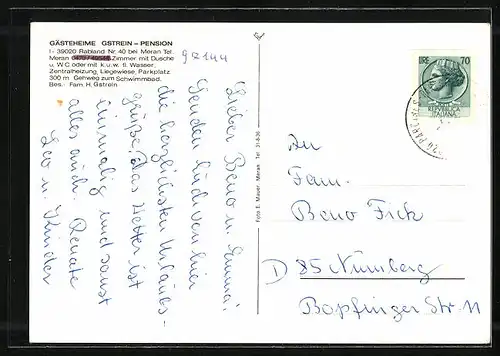 GÄSTEHEIME GSTREIN – PENSION
I - 39020 Rabland Nr. 40 bei Meran Tel.
Meran Zimmer mit Dusche
u. WC oder mit k.u.w. fl. Wasser,
Zentralheizung, Liegewiese, Parkplatz
300 m Gehweg zum Schwimmbad.
Bes.: Fam. H. Gstrein
97144
Lieber Beno u. Emmi!
Senden Euch von hier
die herzlichsten Urlaubs-
grüße. Das Wetter ist
einmalig und sonst
alles auch. Renate
Leo u. Kinder
Foto E. Mauer, Meran Tel. 31-8-36
LIRE 70
REPUBBLICA
ITALIANA
An
Fam.
Beno Fick
D 85 Nürnberg
Bopfinger Str. 11